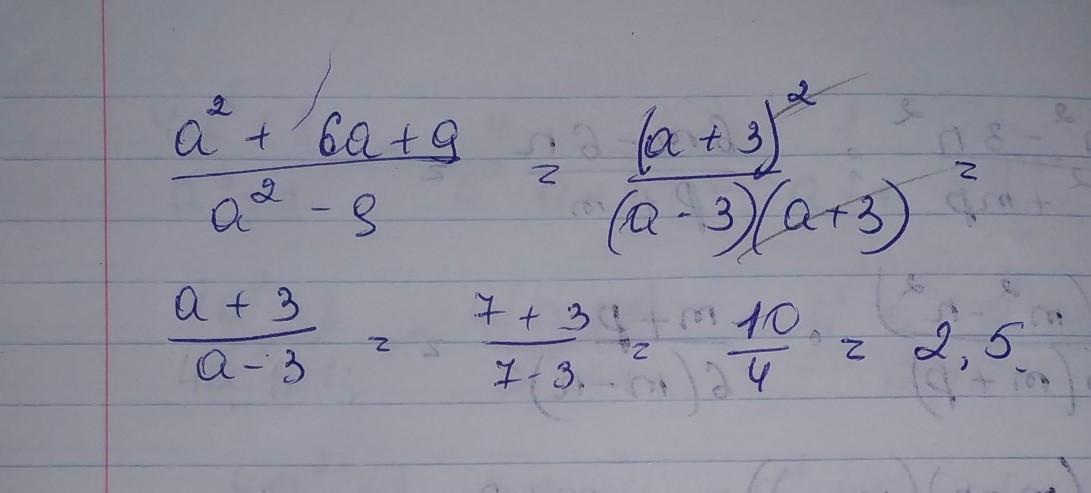 (a² + 6a + 9)/(a² - 9) = (a + 3)²/((a - 3)(a + 3)) =
(a + 3)/(a - 3) = (7 + 3)/(7 - 3) = 10/4 = 2,5